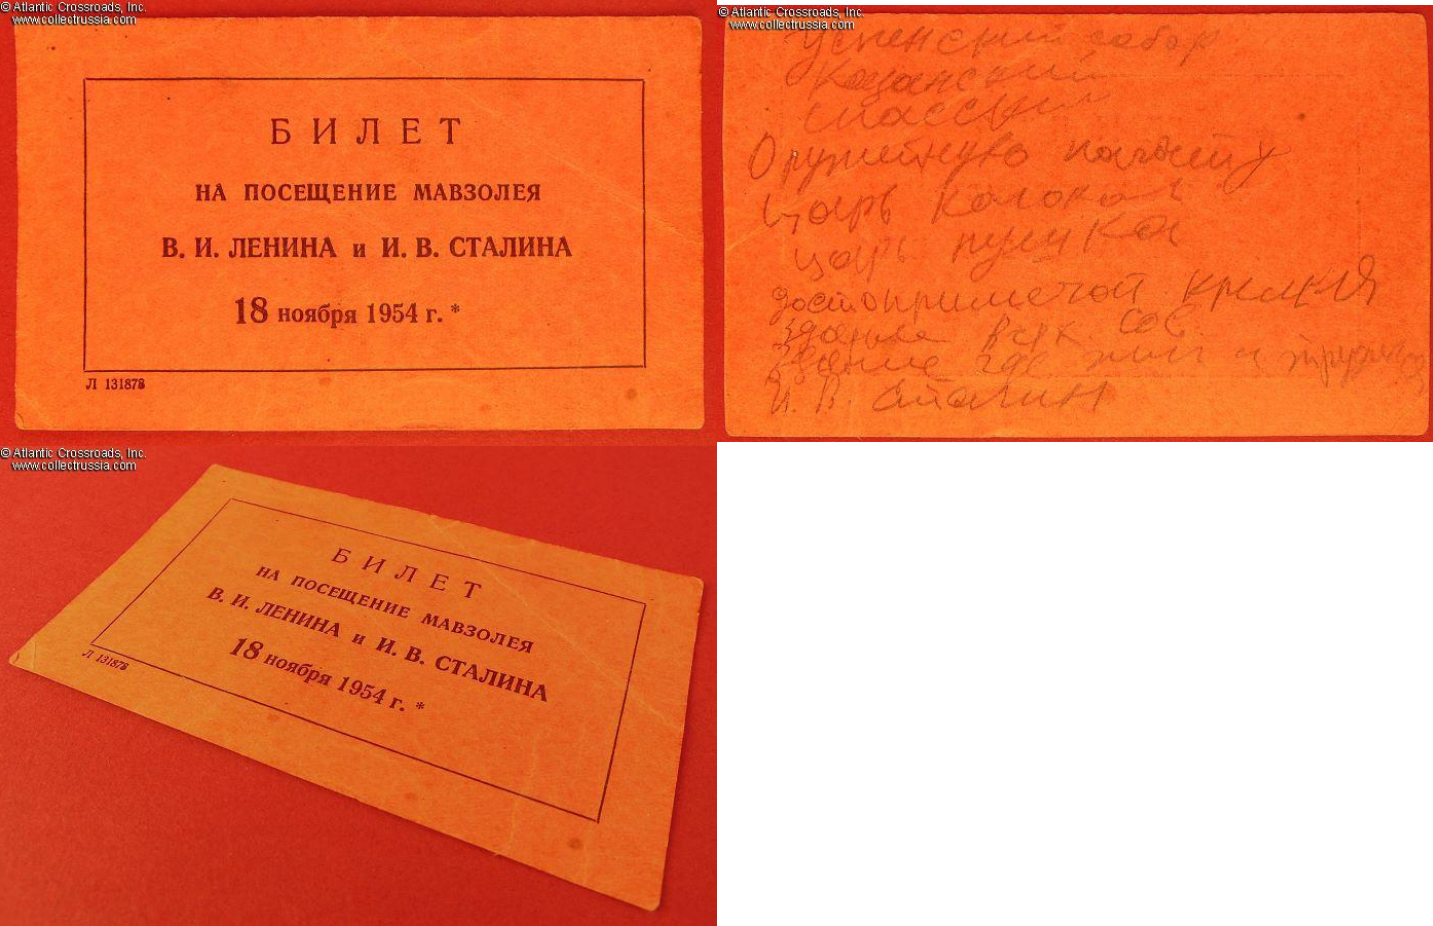 © Atlantic Crossroads, Inc.
www.collectrussia.com
БИЛЕТ
НА ПОСЕЩЕНИЕ МАВЗОЛЕЯ
В. И. ЛЕНИНА и И. В. СТАЛИНА
18 ноября 1954 г. *
Л 131878
© Atlantic Crossroads, Inc.
www.collectrussia.com
Успенский собор
Казанский
Спасский
Оружейную палату
царь колокол
царь пушка
достопримечат Кремля
здание всех
здание где жил и
И. В. Сталин
© Atlantic Crossroads, Inc.
www.collectrussia.com
БИЛЕТ
НА ПОСЕЩЕНИЕ МАВЗОЛЕЯ
В. И. ЛЕНИНА и И. В. СТАЛИНА
18 ноября 1954 г. *
Л 131878